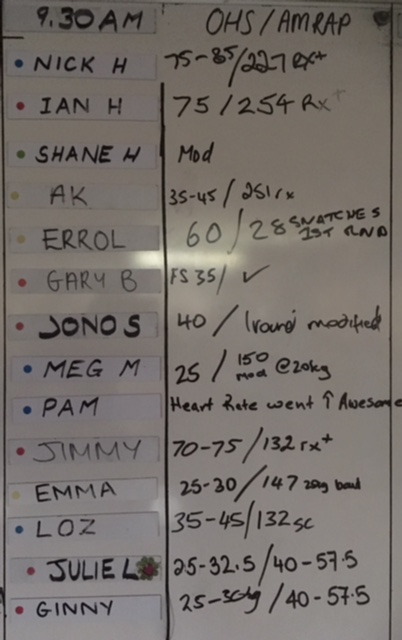 9.30AM OHS/AMRAP
NICK H 75-85/227 RX+
IAN H 75/254 RX+
SHANE H Mod
AK 35-45/251 rx
ERROL 60/28 SNATCHES 1ST RND
GARY B FS 35/✓
JONO S 40/1 round modified
MEG M 25/150 mod @20kg
PAM Heart Rate went ↑ Awesome
JIMMY 70-75/132 rx+
EMMA 25-30/147 20kg
LOZ 35-45/132 sc
JULIE L 25-32.5/40-57.5
GINNY 25-30kg/40-57.5